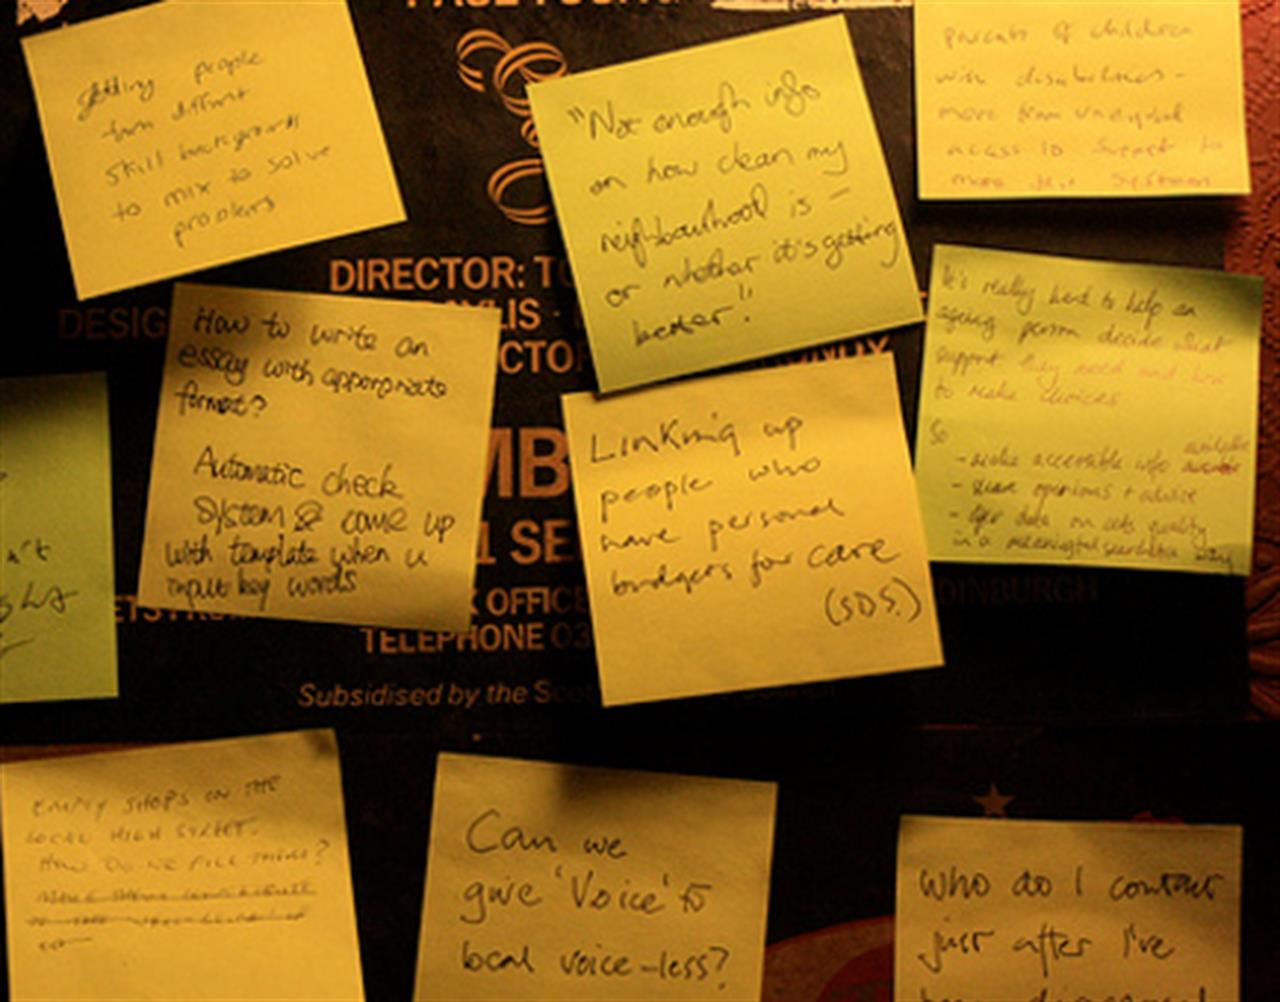 getting people
from diffrent
skill backgrounds
to mix to solve
problems
"Not enough info
on how clean my
neighbourhood is –
or whether it's getting
better".
parents of children
with disabilities –
more than unequal
access to support to
more the system
DIRECTOR: TO
DESIG
LIS
CTOR
How to write an
essay with appropriate
format?
Automatic check
system & come up
with template when u
input key words
Linking up
people who
have personal
budgets for care
(SDS.)
It's really hard to help an
ageing person decide what
support they need and how
to make choices
So
- make accessible info available
- share opinions + advice
- offer data on cets quality
in a meaningful searchable way
MB
1 SE
OFFICE
TELEPHONE 03
DINBURGH
Subsidised by the Sco
EMPTY SHOPS ON THE
LOCAL HIGH STREET.
HOW DO WE FILL THEM?
Can we
give 'Voice' to
local voice-less?
Who do I contact
just after I've
been